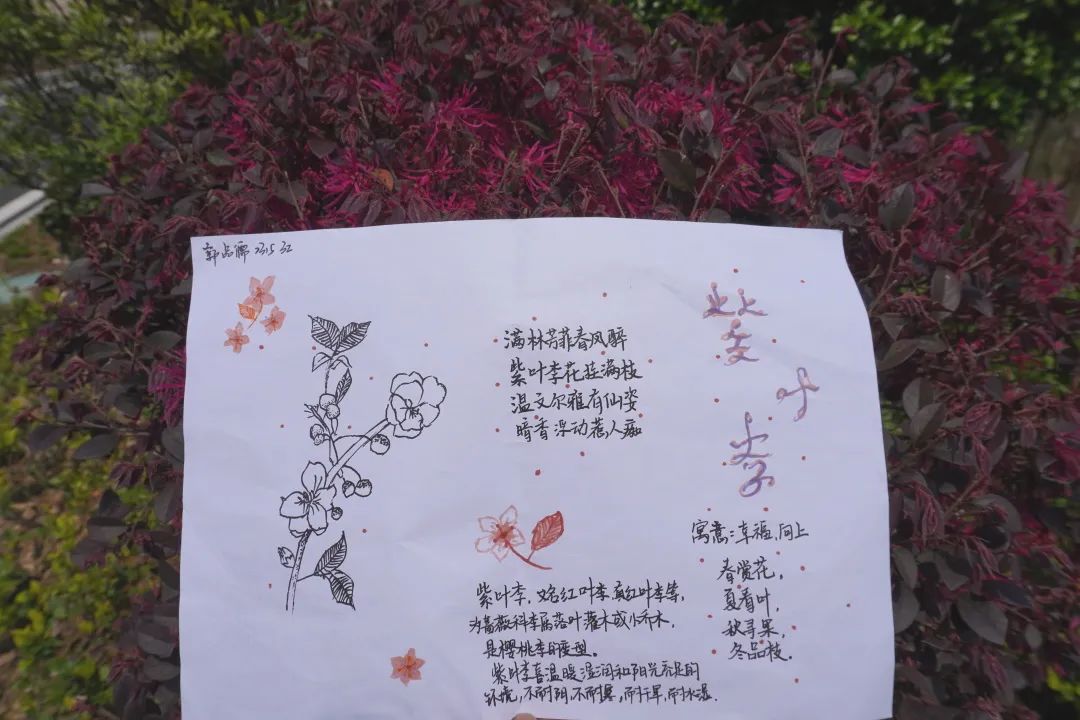 2315 32
紫叶李
满林芳菲春风醉
紫叶李花压满枝
温文尔雅有仙姿
暗香浮动惹人痴
寓意:幸福,向上
春赏花,
夏看叶,
秋寻果,
冬品枝.
紫叶李,又名红叶李 真红叶李等,
为蔷薇科李属落叶灌木或小乔木,
是樱桃李的变型。
紫叶李喜温暖湿润和阳光充足的
环境,不耐阴,不耐寒,耐干旱,耐水湿.